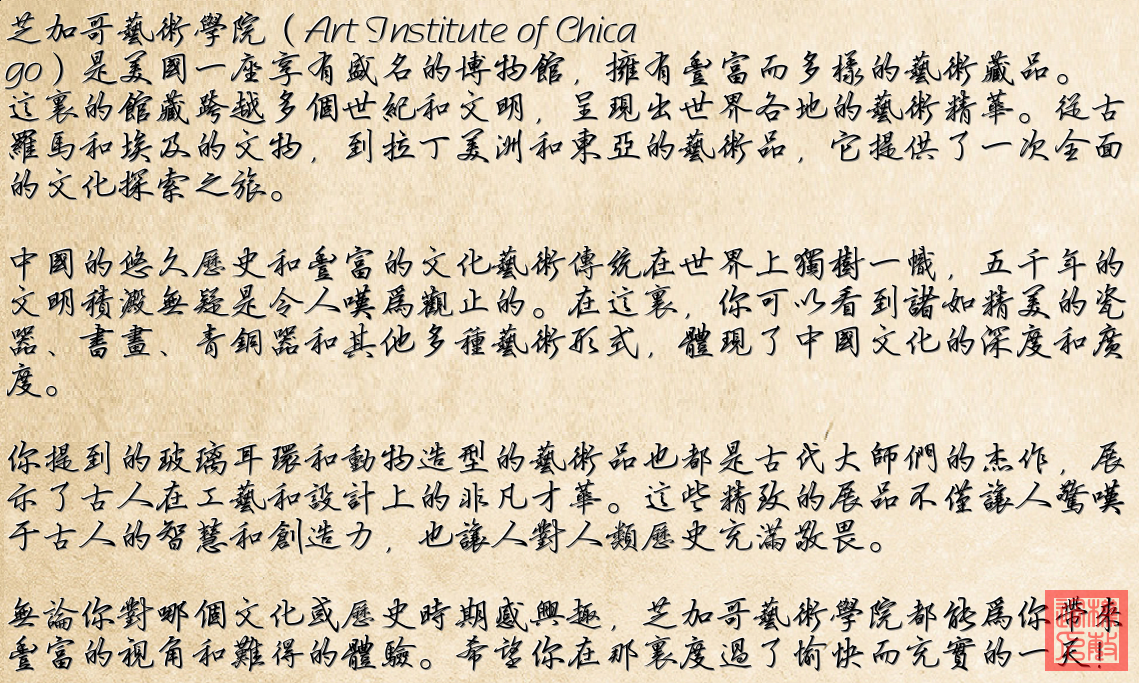 芝加哥藝術學院（Art Institute of Chica
go）是美國一座享有盛名的博物館，擁有豐富而多樣的藝術藏品。
這裏的館藏跨越多個世紀和文明，呈現出世界各地的藝術精華。從古
羅馬和埃及的文物，到拉丁美洲和東亞的藝術品，它提供了一次全面
的文化探索之旅。
中國的悠久歷史和豐富的文化藝術傳統在世界上獨樹一幟，五千年的
文明積澱無疑是令人嘆爲觀止的。在這裏，你可以看到諸如精美的瓷
器、書畫、青銅器和其他多種藝術形式，體現了中國文化的深度和廣
度。
你提到的玻璃耳環和動物造型的藝術品也都是古代大師們的杰作，展
示了古人在工藝和設計上的非凡才華。這些精致的展品不僅讓人驚嘆
于古人的智慧和創造力，也讓人對人類歷史充滿敬畏。
無論你對哪個文化或歷史時期感興趣，芝加哥藝術學院都能爲你帶來
豐富的視角和難得的體驗。希望你在那裏度過了愉快而充實的一天！